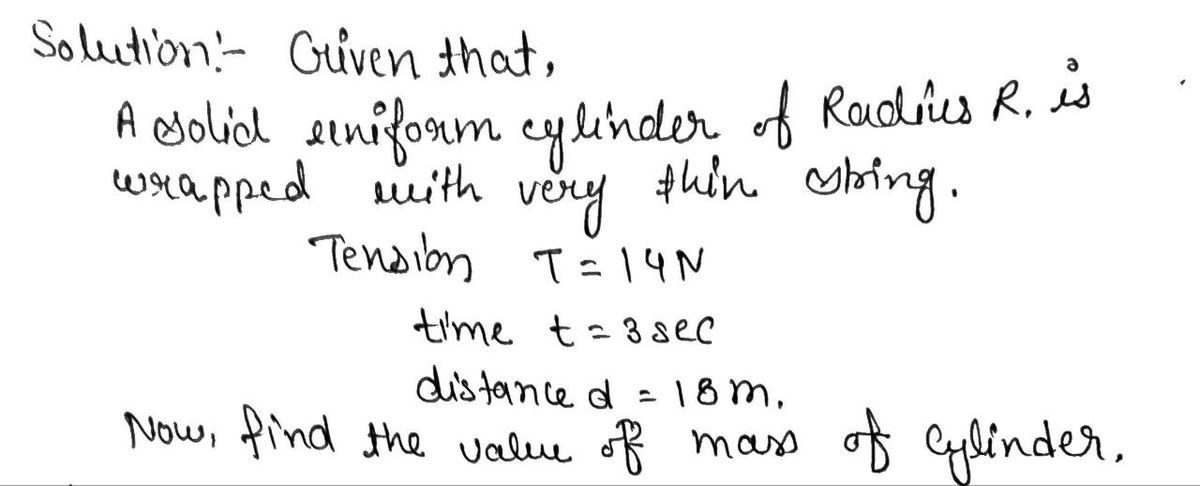 Solution:- Given that,
A solid uniform cylinder of Radius R. is
wrapped with very thin string.
Tension T = 14N
time t = 3 sec
distance d = 18 m.
Now, find the value of mass of cylinder.